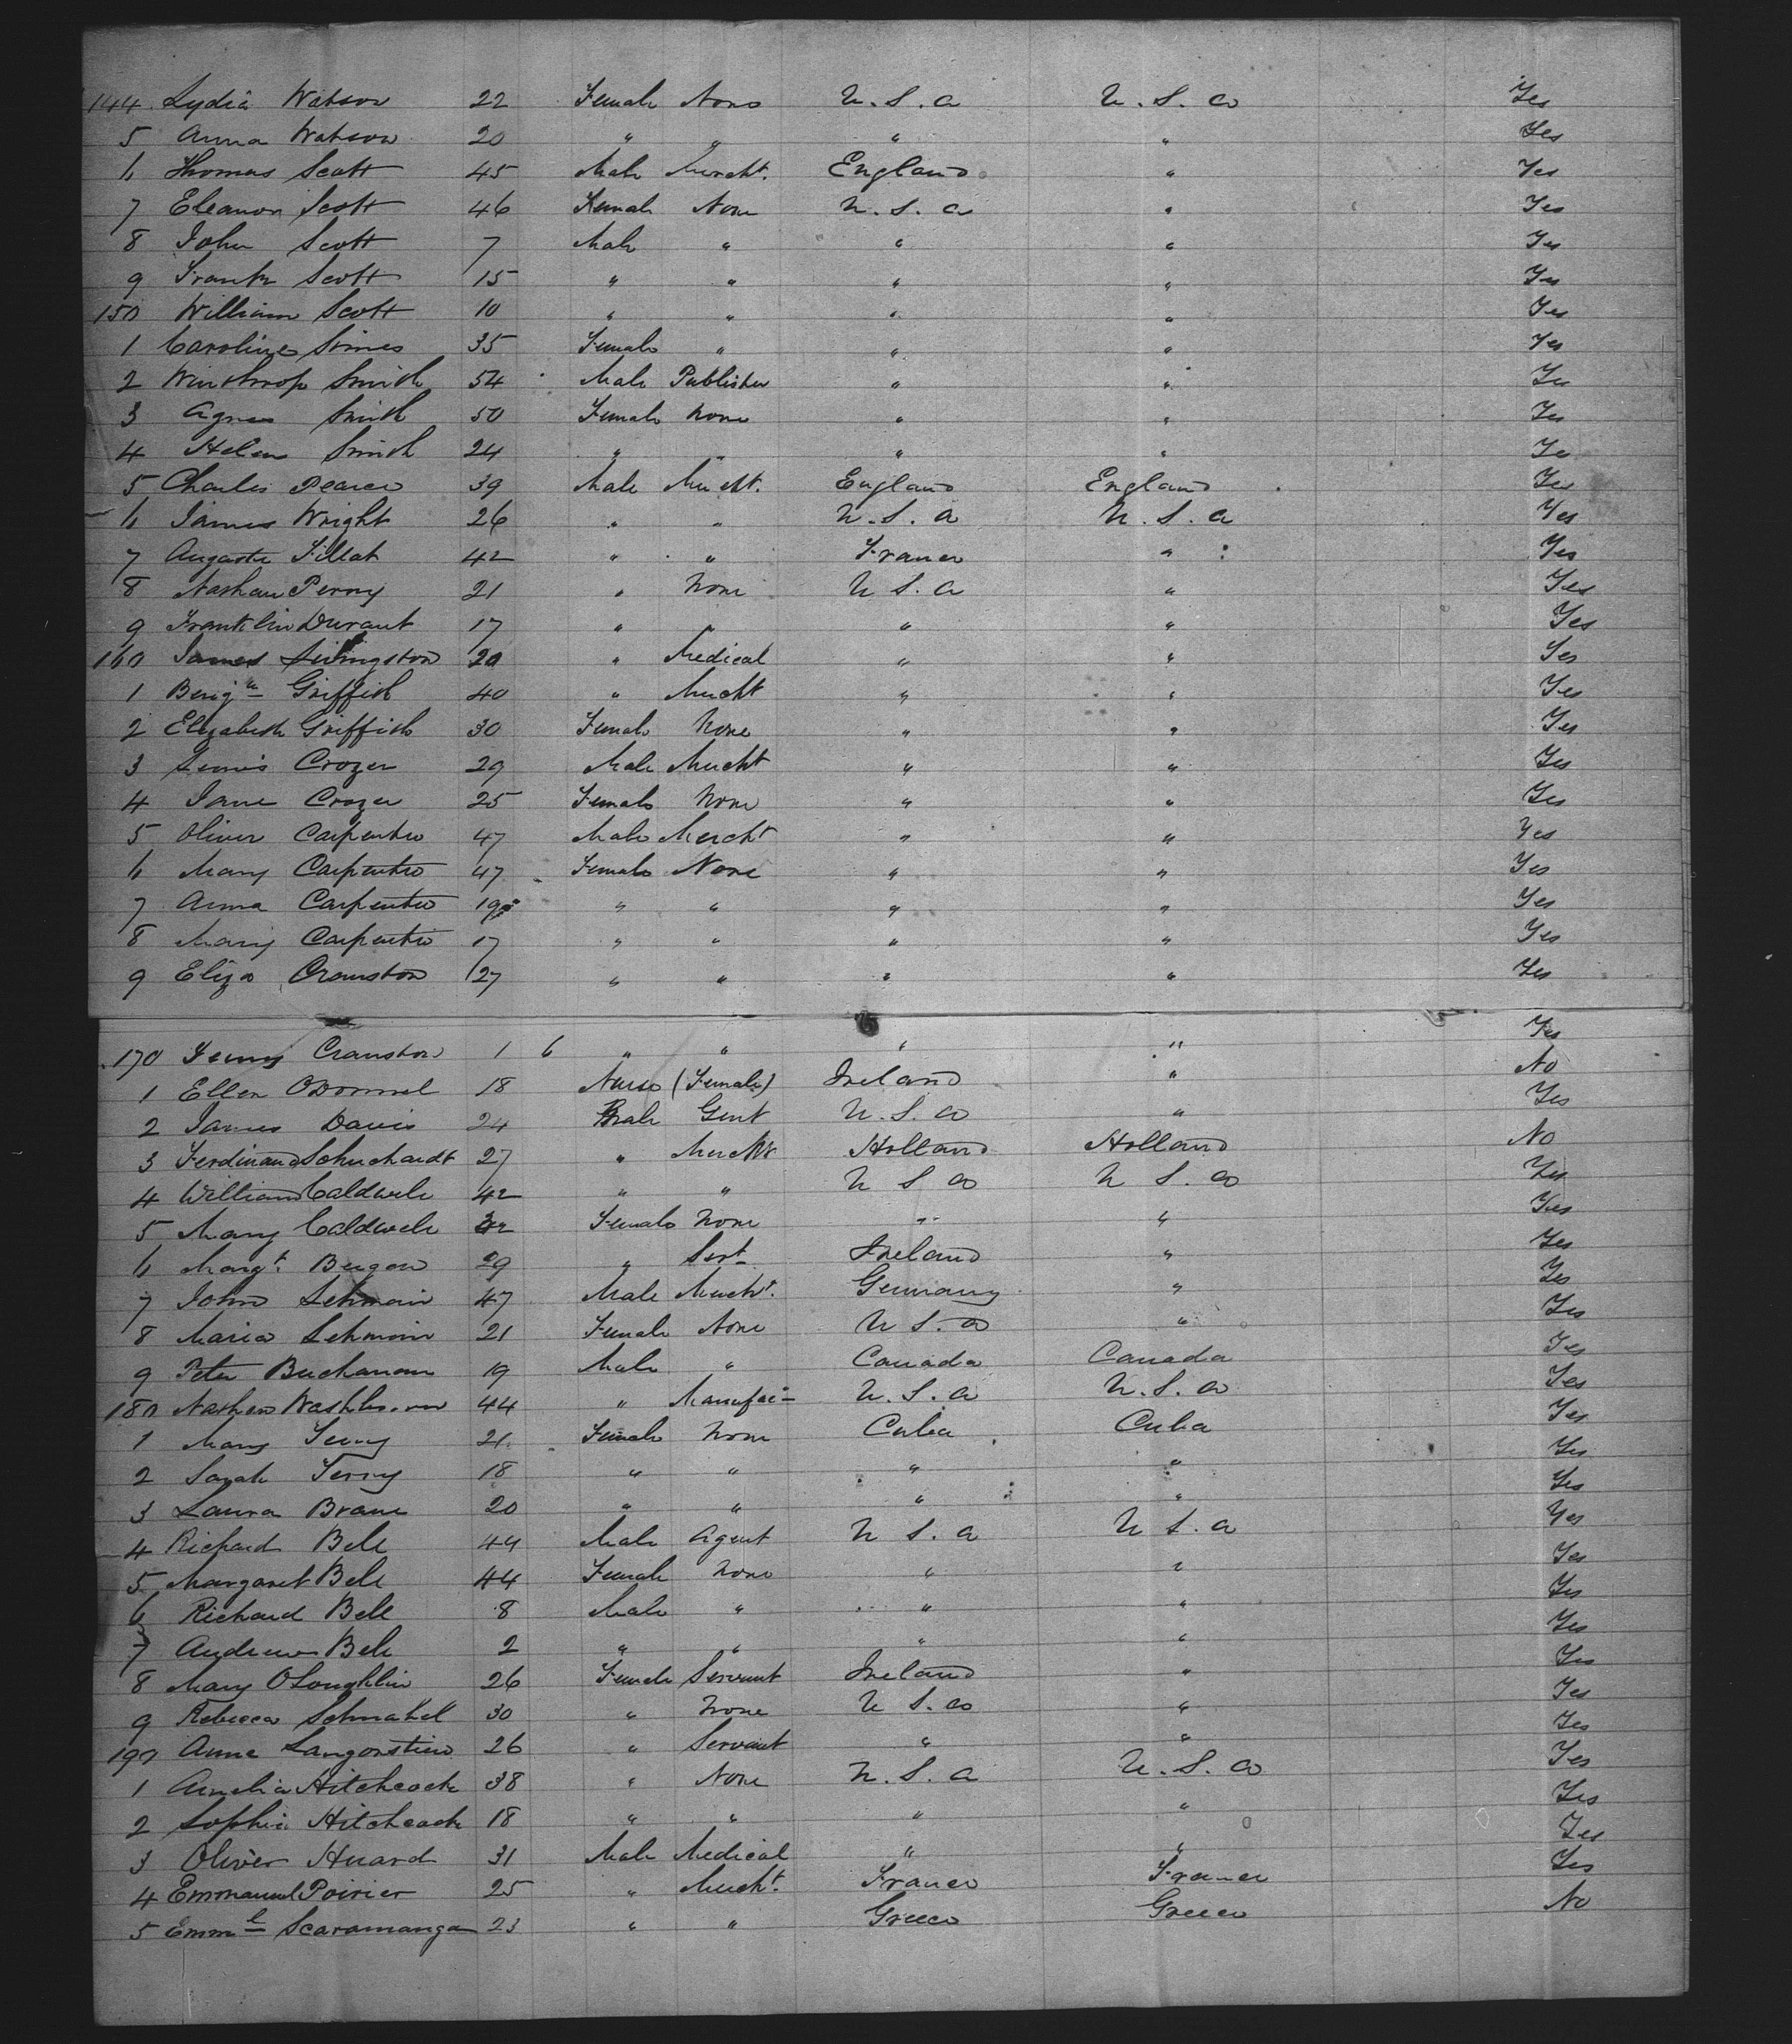 144 Lydia Watson 22 Female None U.S.A U.S.A Yes
5 Anna Watson 20 " " " " Yes
6 Thomas Scott 45 Male Mercht. England " Yes
7 Eleanor Scott 46 Female None U.S.A " Yes
8 John Scott 7 Male " " " Yes
9 Frank Scott 15 " " " " Yes
150 William Scott 10 " " " " Yes
1 Caroline Simes 35 Female " " " Yes
2 Winthrop Smith 54 Male Publisher " " Yes
3 Agnes Smith 50 Female None " " Yes
4 Helen Smith 24 " " " " Yes
5 Charles Pearce 39 Male Mercht. England England Yes
6 James Wright 26 " " U.S.A U.S.A Yes
7 Auguste Fillat 42 " " France " Yes
8 Nathan Perry 21 " None U S.A " Yes
9 Franklin Durant 17 " " " " Yes
160 James Livingston 20 " Medical " " Yes
1 Benjn Griffith 40 " Mercht " " Yes
2 Elizabeth Griffith 30 Female None " " Yes
3 Lewis Crozer 29 Male Mercht " " Yes
4 Jane Crozer 25 Female None " " Yes
5 Oliver Carpenter 47 Male Mercht " " Yes
6 Mary Carpenter 47 Female None " " Yes
7 Anna Carpenter 19 " " " " Yes
8 Mary Carpenter 17 " " " " Yes
9 Eliza Cranston 27 " " " " Yes
170 Jenny Cranston 1 6 " " " " Yes
1 Ellen ODonnel 18 Nurse (Female) Ireland " No
2 James Davis 24 Male Gent U.S.A " Yes
3 Ferdinand Schuchardt 27 " Mercht Holland Holland No
4 William Caldwell 42 " " U S A U S.A Yes
5 Mary Caldwell Female None " " Yes
6 Margt. Bergen 29 " Servt Ireland " Yes
7 John Lehmain 47 Male Mercht. Germany " Yes
8 Maria Lehmain 21 Female None U S.A " Yes
9 Peter Buchanan 19 Male " Canada Canada Yes
180 Nathan Washburn 44 " Manufac U.S.A U.S.A Yes
1 Mary Terry 21 Female None Cuba Cuba Yes
2 Sarah Terry 18 " " " " Yes
3 Laura Brane 20 " " " " Yes
4 Richard Bell 44 Male Agent U S.A U S.A Yes
5 Margaret Bell 44 Female None " " Yes
6 Richard Bell 8 Male " " " Yes
7 Andrew Bell 2 " " " " Yes
8 Mary OLoughlin 26 Female Servant Ireland " Yes
9 Rebecca Schnabel 30 " None U S.A " Yes
190 Anna Langonstein 26 " Servant " " Yes
1 Amelia Hitchcock 38 " None U.S.A U.S.A Yes
2 Sophia Hitchcock 18 " " " " Yes
3 Oliver Huard 31 Male Medical " " Yes
4 Emmanuel Poirier 25 " Mercht. France France Yes
5 Emml Scaramanga 23 " " Greece Greece No